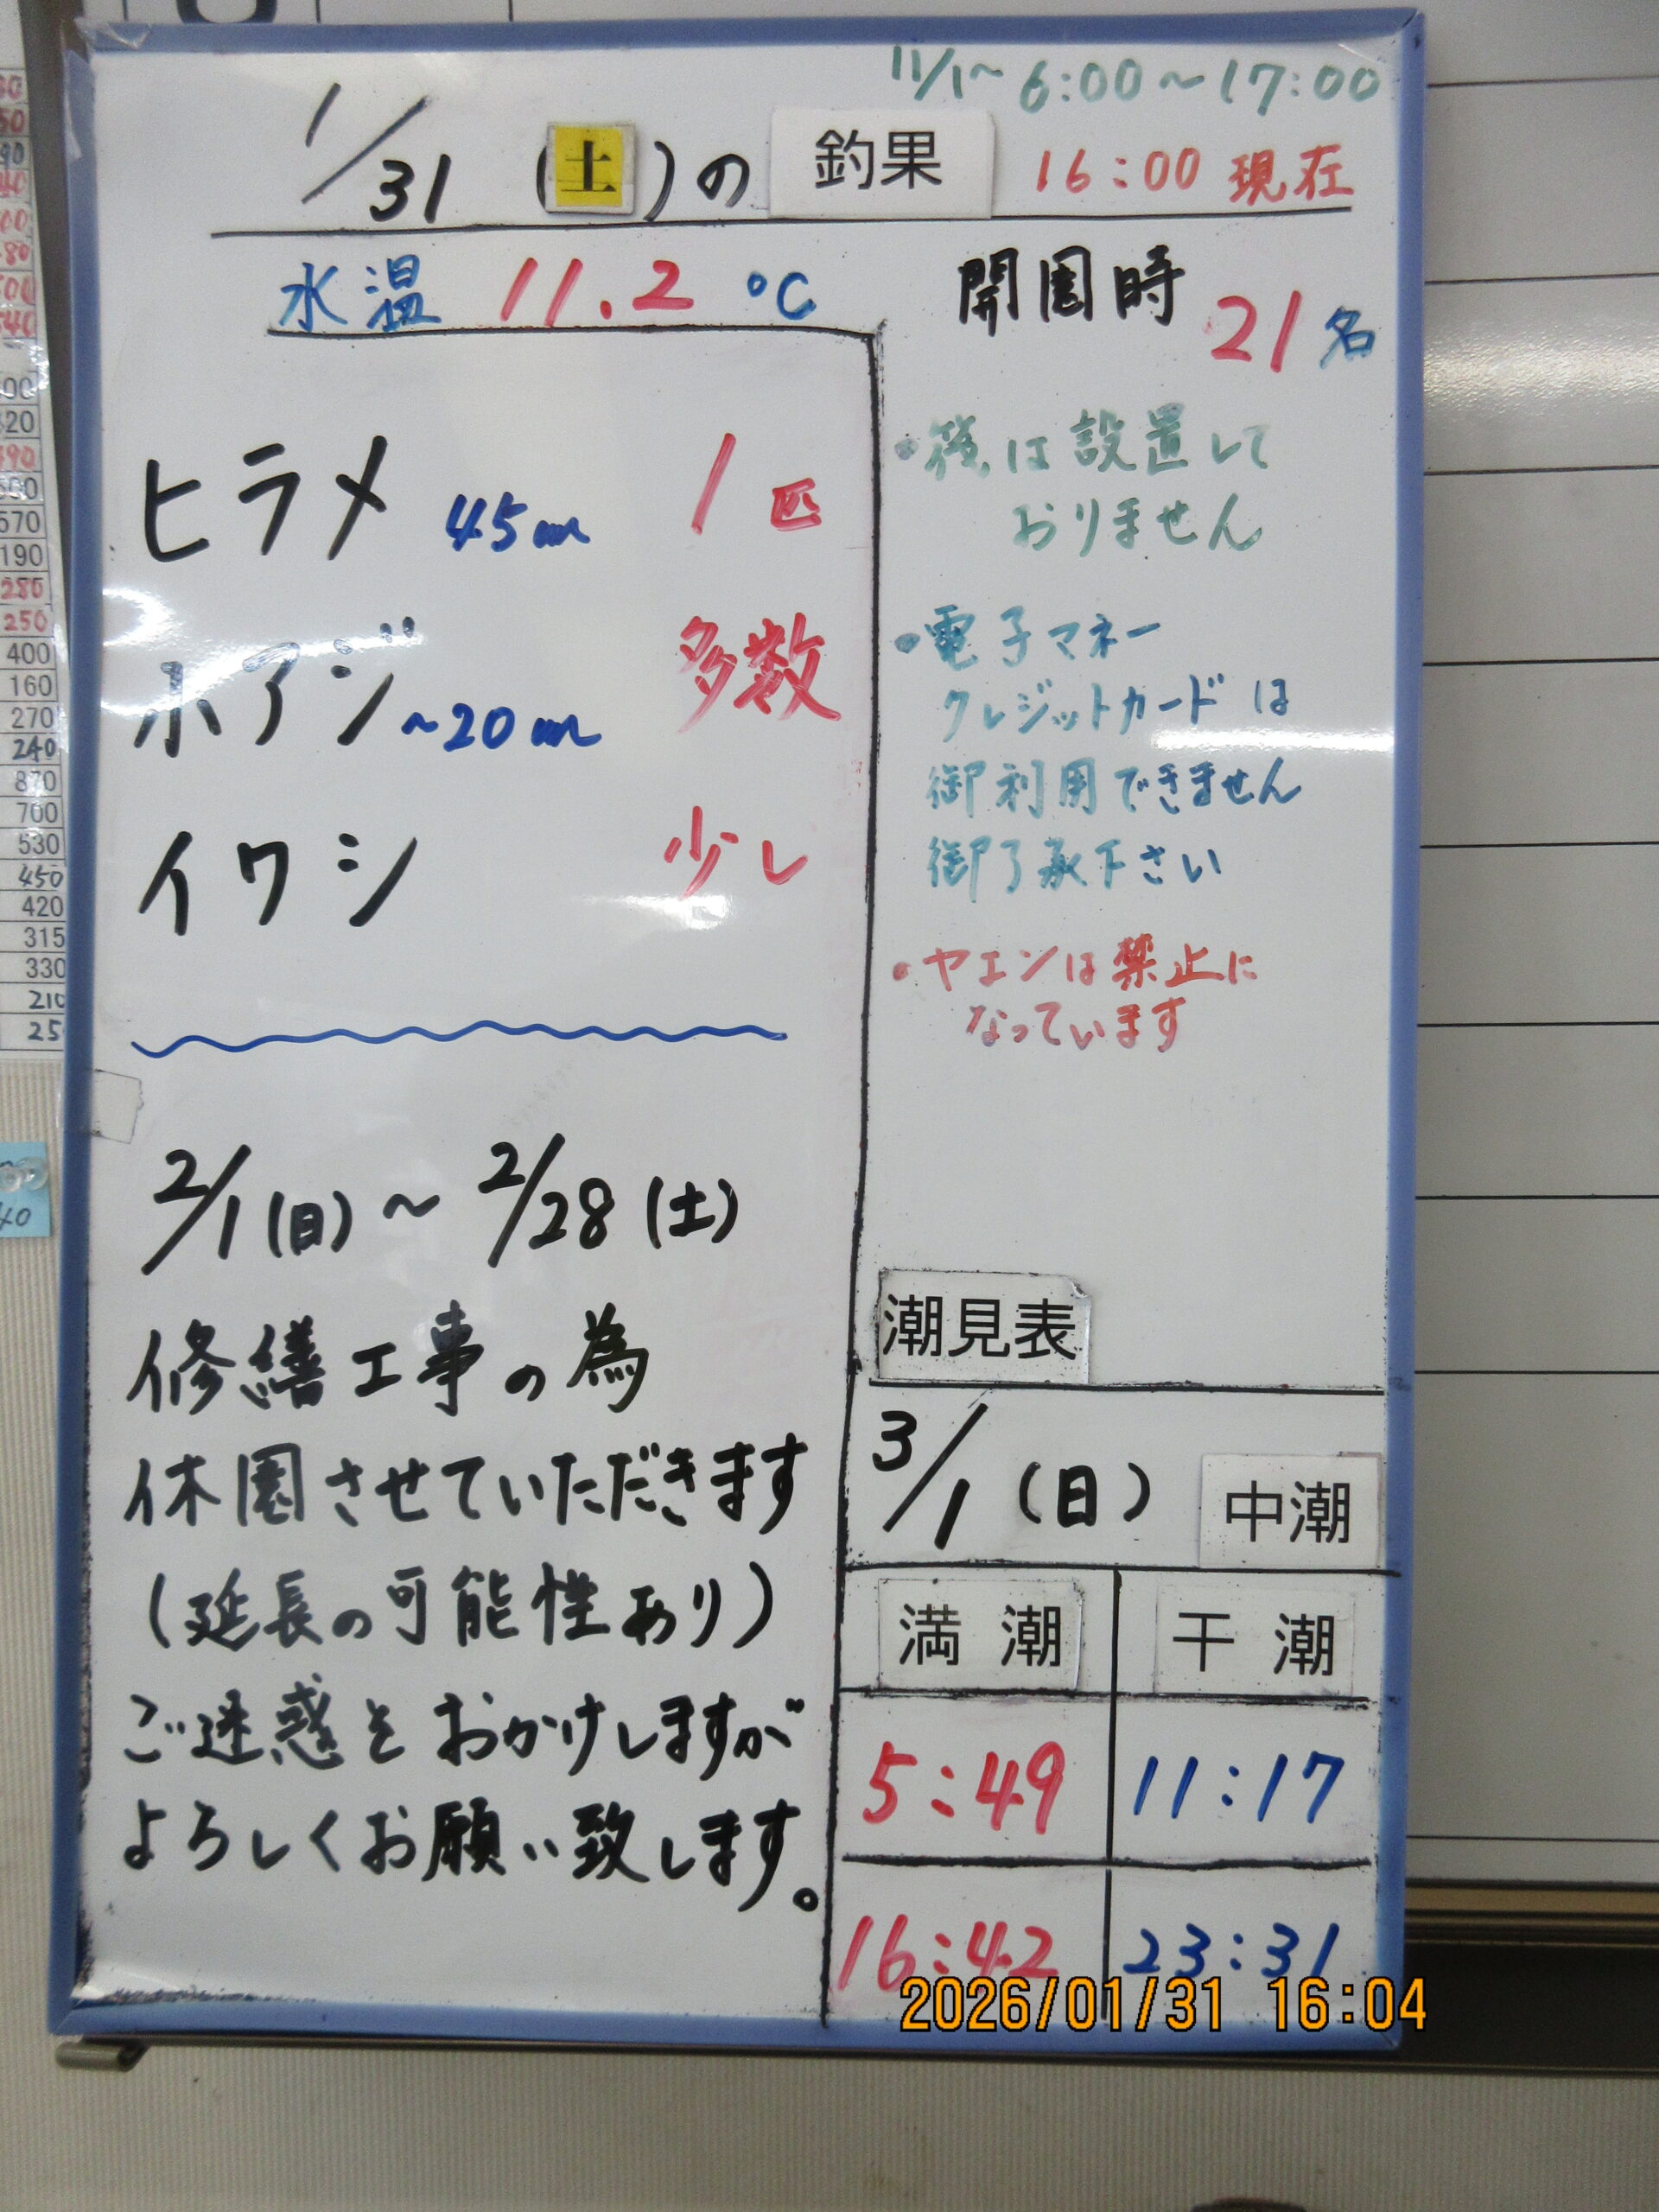 11/1~ 6:00~17:00
1/31 (土)の 釣果 16:00 現在
水温 11.2 ℃
開園時 21名
ヒラメ 45cm 1匹
ホアジ ~20cm 多数
イワシ 少し
2/1(日)~ 2/28(土)
修繕工事の為
休園させていただきます
(延長の可能性あり)
ご迷惑をおかけしますが
よろしくお願い致します。
・ は設置して
おりません
・電子マネー
クレジットカードは
御利用できません
御了承下さい
・ヤエンは禁止に
なっています
潮見表
3/1(日) 中潮
満潮 干潮
5:49 11:17
16:42 23:31
2026/01/31 16:04
400
160
270
240
870
700
530
450
420
315
330